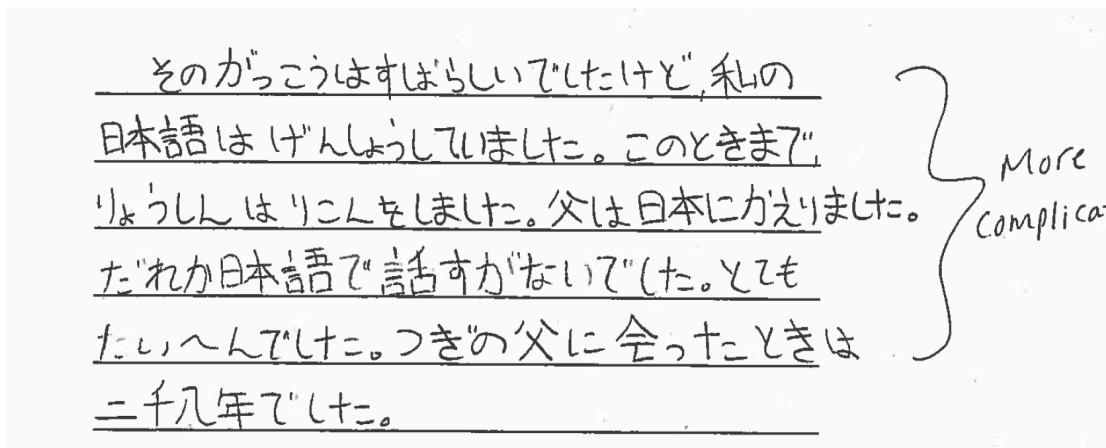 そのがっこうはすばらしいでしたけど,私の
日本語はげんしょうしていました。このときまで,
りょうしんはりこんをしました。父は日本にかえりました。
だれか日本語で話すがないでした。とても
たいへんでした。つぎの父に会ったときは
二千八年でした。
More
Complica